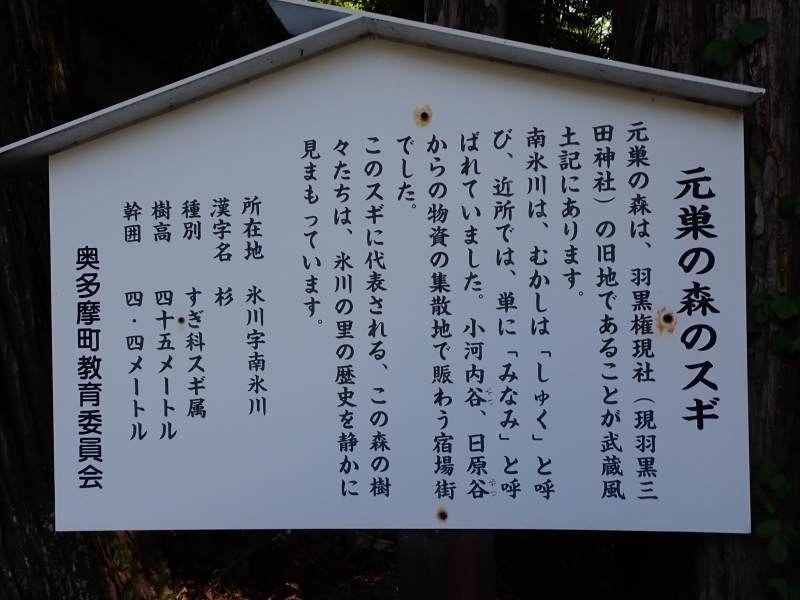 元巣の森のスギ
元巣の森は、羽黒権現社（現羽黒三
田神社）の旧地であることが武蔵風
土記にあります。
南氷川は、むかしは「しゅく」と呼
び、近所では、単に「みなみ」と呼
ばれていました。小河内谷、日原谷
からの物資の集散地で賑わう宿場街
でした。
このスギに代表される、この森の樹
々たちは、氷川の里の歴史を静かに
見まもっています。
所在地　氷川字南氷川
漢字名　杉
種別　すぎ科スギ属
樹高　四十五メートル
幹囲　四・四メートル
奥多摩町教育委員会